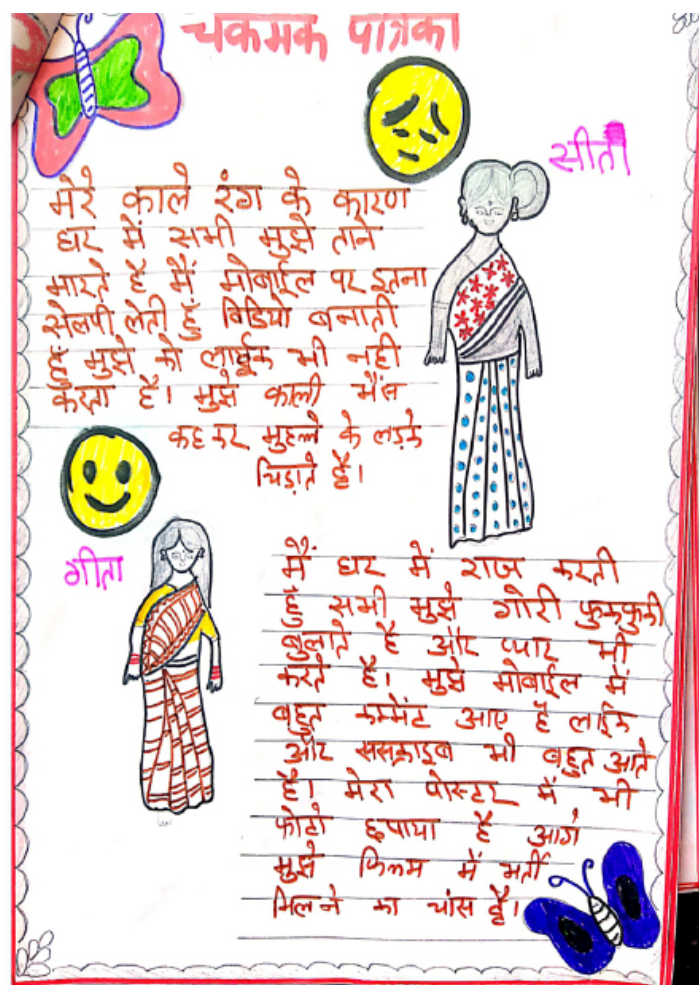 चकमक पत्रिका
सीता
मेरे काले रंग के कारण
घर में सभी मुझे ताने
मारते है मैं मोबाईल पर इतना
सेलपी लेती हुँ विडियो बनाती
हुँ मुझे को लाईक भी नही
करता है। मुझे काली भैंस
कह कर मुहल्ले के लड़के
चिड़ाते है।
गीता
मैं घर में राज करती
हुँ सभी मुझे गोरी फुकफुकी
बुलाते है और प्यार भी
करते है। मुझे मोबाईल में
बहुत कमेंट आए है लाईक
और ससक्राइब भी बहुत आते
है। मेरा पोस्टर में भी
फोटो छपाया है आगे
मुझे फिलम में भर्ती
मिलने का चांस है।